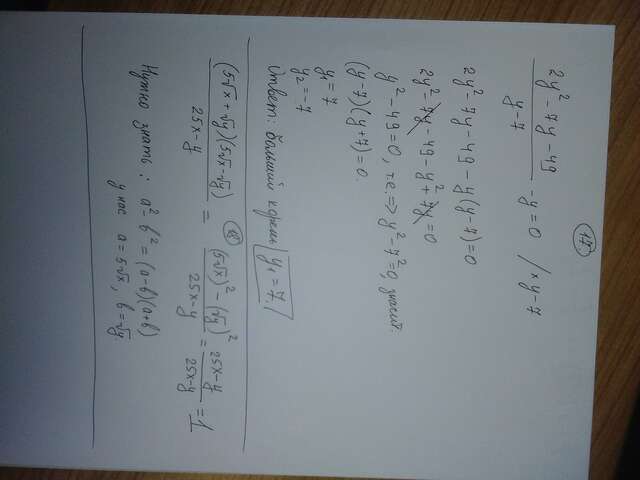 17
(2y² - 7y - 49)/(y-7) - y = 0 / × y-7
2y² 7y - 49 - y(y-7) = 0
2y² - 7y - 49 - y² + 7y = 0
y² - 49 = 0, т.е. => y² - 7² = 0, значит:
(y-7)(y+7) = 0.
y₁ = 7
y₂ = -7
Ответ: больший корень y₁ = 7.
18
((5√x + √y)(5√x - √y))/(25x - y) = ((5√x)² - (√y)²)/(25x - y) = (25x - y)/(25x - y) = 1
Нужно знать: a² - b² = (a-b)(a+b)
у нас a = 5√x, b = √y.